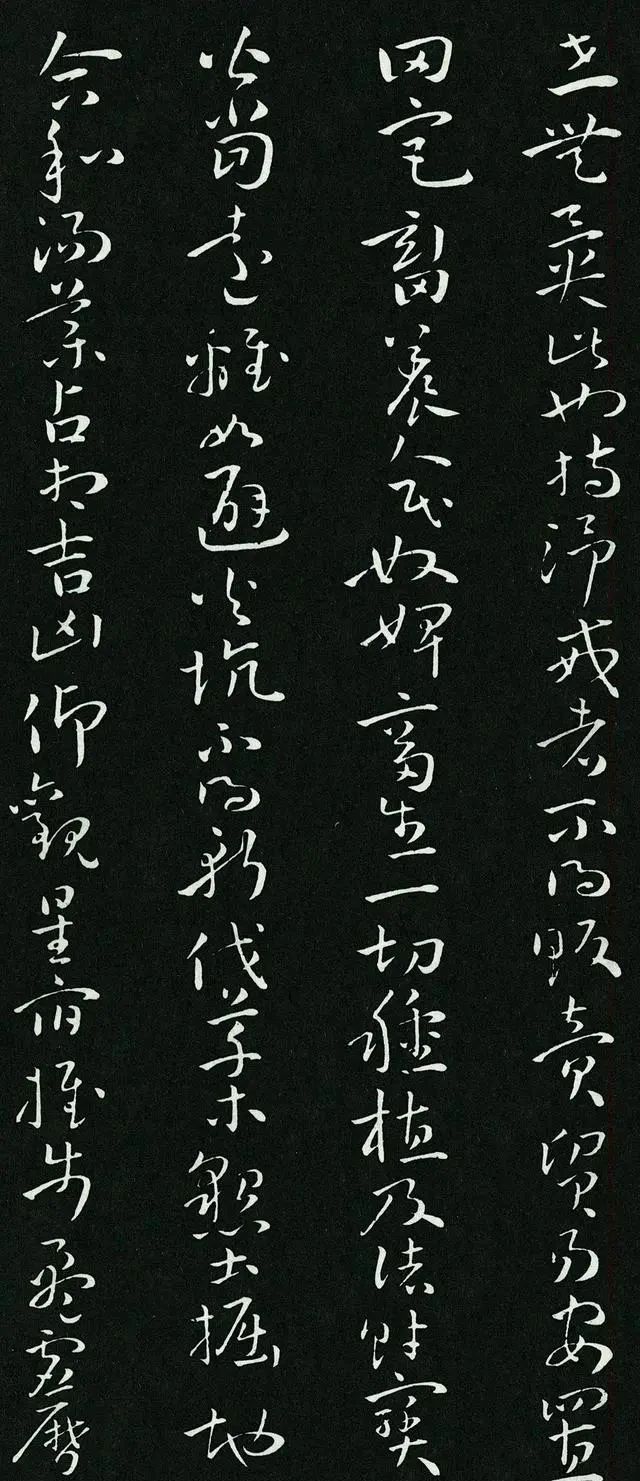 世無異此也持淨戒者不得販賣貿易安置
田宅畜養人民奴婢畜生一切種植及諸財寶
皆當遠離如避火坑不得斬伐草木墾土掘地
合和湯藥占相吉凶仰觀星宿推步盈虛曆